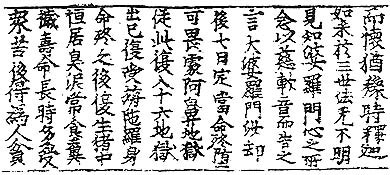 而懷猶豫時釋迦
如来於三世法无不明
見知婆羅門心之所
念以慈軟音而告之
言大婆羅門汝却
後七日定當命終墮
可畏處阿鼻地獄
從此復入十六地獄
出已復受旃陀羅身
命終之後復生猪中
恒居臭泥常食糞
穢壽命長時多受
衆苦後得為人貧